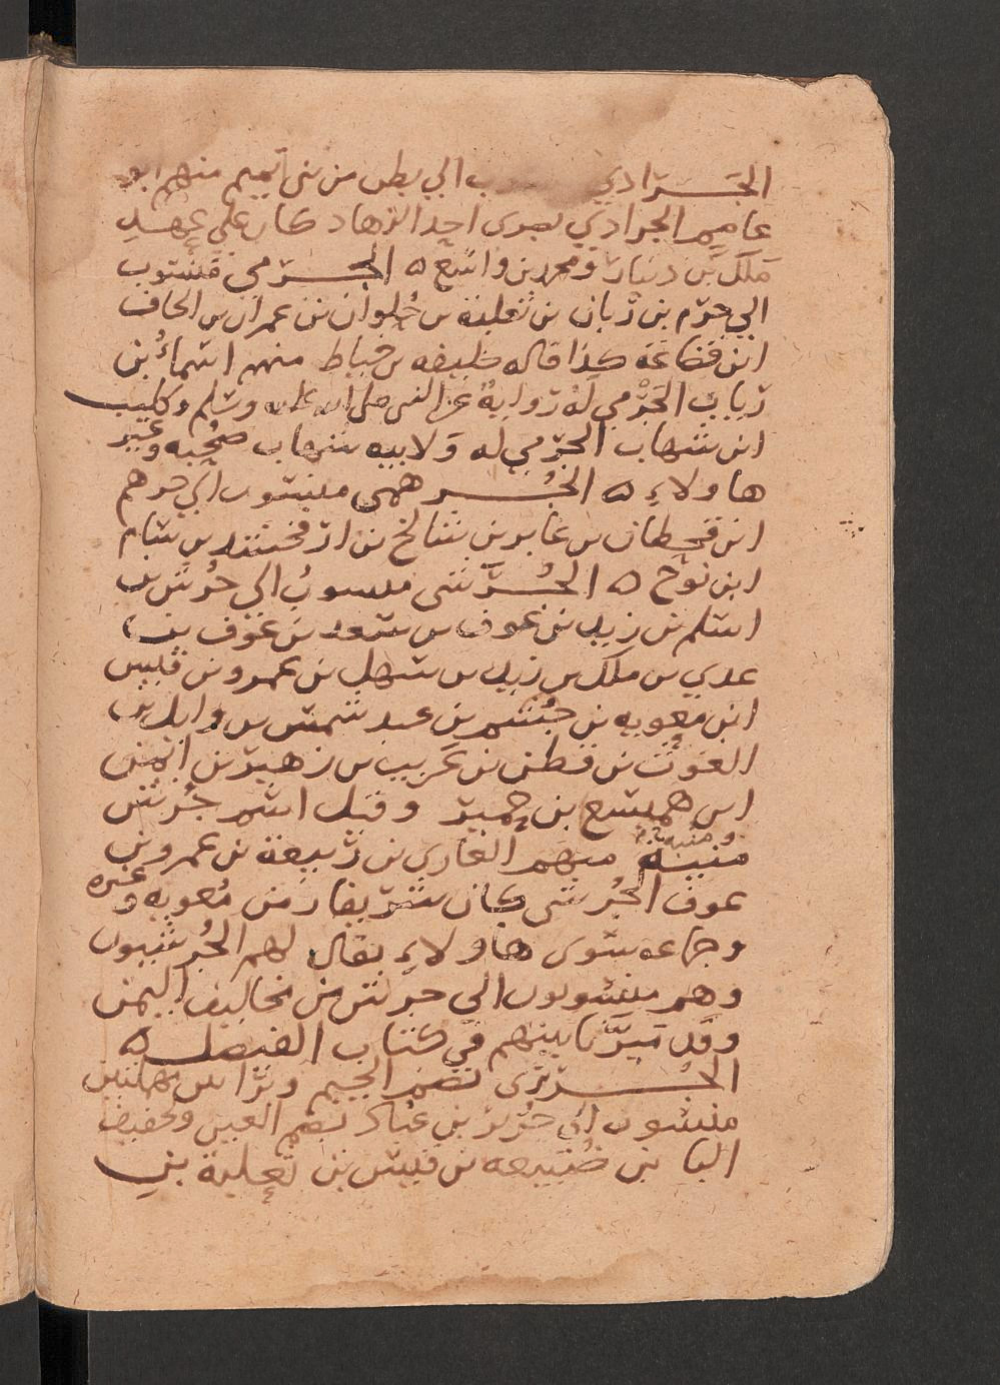 الجَرَّادي الي بطن من بني تميم منهم ابو
عامر الجرادي بصرى احد الزهاد كان علي عهد
ملك بن دينار ومحمد بن واسع ه الجرمي منسوب
الي جرم بن زبان بن ثعلبة بن حُلوان بن عمران بن الحاف
ابن قضاعة كذا قاله خليفه بن خياط منهم اسماءُ بن
رياب الجَرْمي لهُ روايةٌ عن النبي صلى الله عليه وسلم وكليب
ابن شهاب الجرمي له ولابيه شهاب صُحبه وغير
هاولاء ه الجُرهمى منسوب الي جرهم
ابن قحطان بن عابر بن شالخ بن ارفخشد بن سام
ابن نوح ه الجُرَشى منسوبُ الي جُرَش بن
اسلم بن زيد بن غوف بن سعد بن عوف بن
عدي بن ملك بن زيد بن سهل بن عمرو بن قيس
ابن معويه بن جُشم بن عبد شمس بن وايل بن
الغوث بن قطن بن عَريب بن زهير بن ايمن
ابن هميسع بن حمير وقيل اسم جُرَش
مُنبه ومنبه منهم الغاز بن ربيعة بن عمرو بن
عوف الجُرشى كان شريفا زمن مُعويه وغيره
وجماعه سوى هاولاء يقال لهم الجُرشيون
وهم منسوبون الي جرش من مخاليف اليمن
وقد ميّزنا بينهم في كتاب الفيصل ه
الجُريرى بضم الجيم ورَاين مهملتين
منسوب الي جُرَير بن عُباد بضم العين وتخفيف
البا بن ضُبيعه بن قيس بن ثعلبة بن